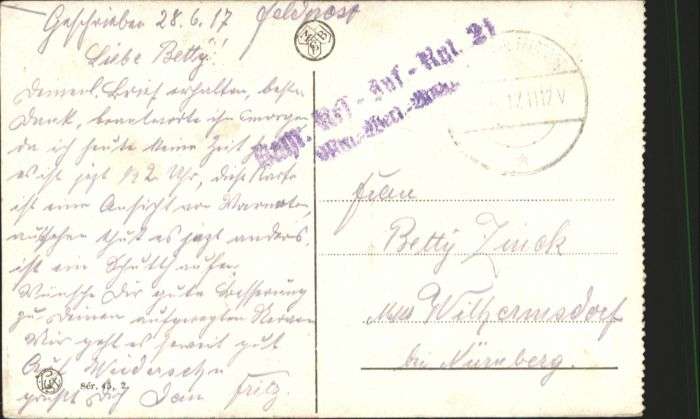 Geschrieben 28.6.17 Feldpost
Liebe Betty!
Deinen l. Brief erhalten, besten
Dank, beantworte ihn morgen
da ich heute keine Zeit habe
es ist jezt ½2 Uhr, diese Karte
ist eine Ansicht von Warneton,
aussehen thut es jezt anders,
ist ein Schutthaufen.
Wünsche Dir gute Besserung
zu Deinen aufgeregten Nerven
Mir geht es soweit gut
Auf Wiedersehn
grüßt Dich Dein Fritz.
Sér. 45, 2
Inf - Rgt. 21
17.11-12 V
Frau
Betty Zinck
Wilhermsdorf
bei Nürnberg.